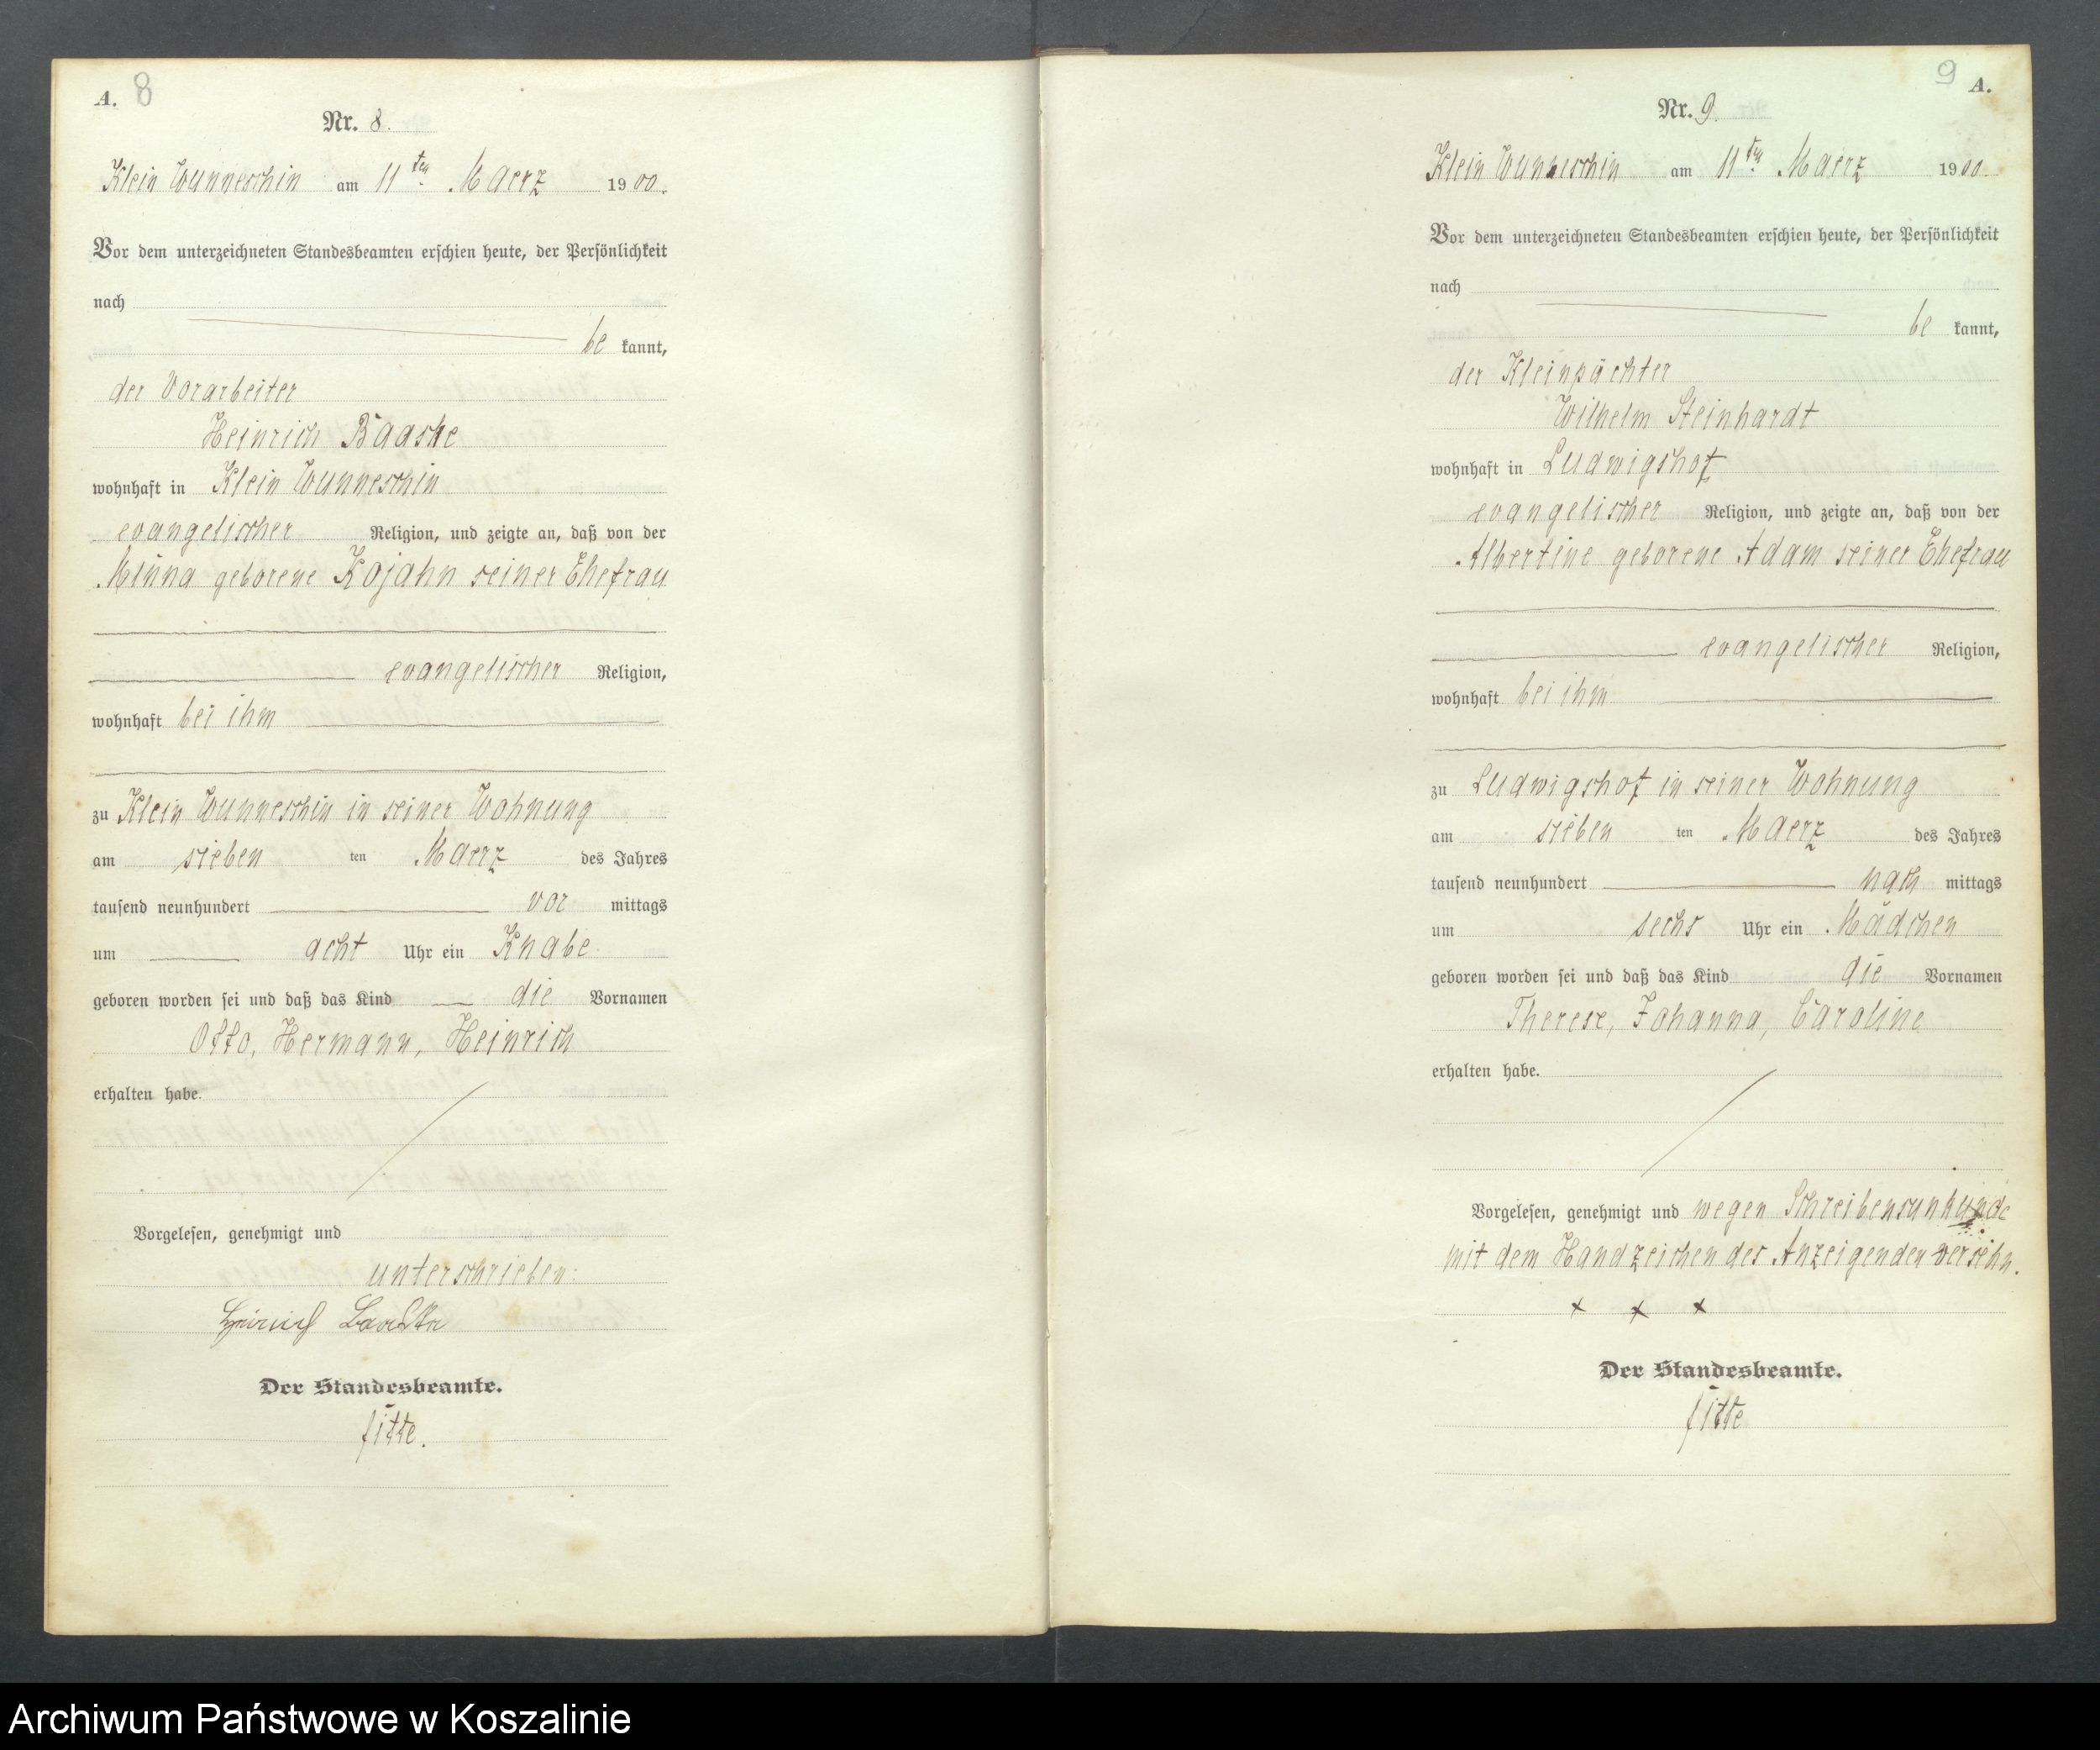 A. 8
Nr. 8.
Klein Wunneschin am 11ten Maerz 1900.
Vor dem unterzeichneten Standesbeamten erschien heute, der Persönlichkeit
nach
be kannt,
der Vorarbeiter
Heinrich Baaske
wohnhaft in Klein Wunneschin
evangelischer Religion, und zeigte an, daß von der
Minna geborene Kojahn seiner Ehefrau
evangelischer Religion,
wohnhaft bei ihm
zu Klein Wunneschin in seiner Wohnung
am sieben ten Maerz des Jahres
tausend neunhundert vor mittags
um acht Uhr ein Knabe
geboren worden sei und daß das Kind die Vornamen
Otto, Hermann, Heinrich
erhalten habe.
Vorgelesen, genehmigt und
unterschrieben:
Heinrich Baaske
Der Standesbeamte.
9 A.
Nr. 9.
Klein Wunneschin am 11ten Maerz 1900
Vor dem unterzeichneten Standesbeamten erschien heute, der Persönlichkeit
nach
be kannt,
der Kleinpächter
Wilhelm Steinhardt
wohnhaft in Ludwigshof
evangelischer Religion, und zeigte an, daß von der
Albertine geborene Adam seiner Ehefrau
evangelischer Religion,
wohnhaft bei ihm
zu Ludwigshof in seiner Wohnung
am sieben ten Maerz des Jahres
tausend neunhundert nach mittags
um sechs Uhr ein Mädchen
geboren worden sei und daß das Kind die Vornamen
Therese, Johanna, Caroline
erhalten habe.
Vorgelesen, genehmigt und wegen Schreibensunkunde
mit dem Handzeichen des Anzeigenden versehn.
x x x
Der Standesbeamte.
Archiwum Państwowe w Koszalinie